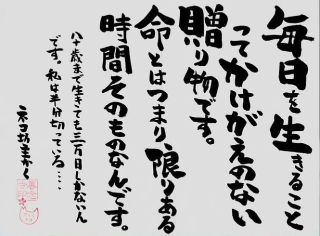 毎日を生きること
ってかけがえのない
贈り物です。
命とはつまり限りある
時間そのものなんです。
八十歳まで生きても三万日しかないん
です。私は半分切っている…
ネコ坊まかく